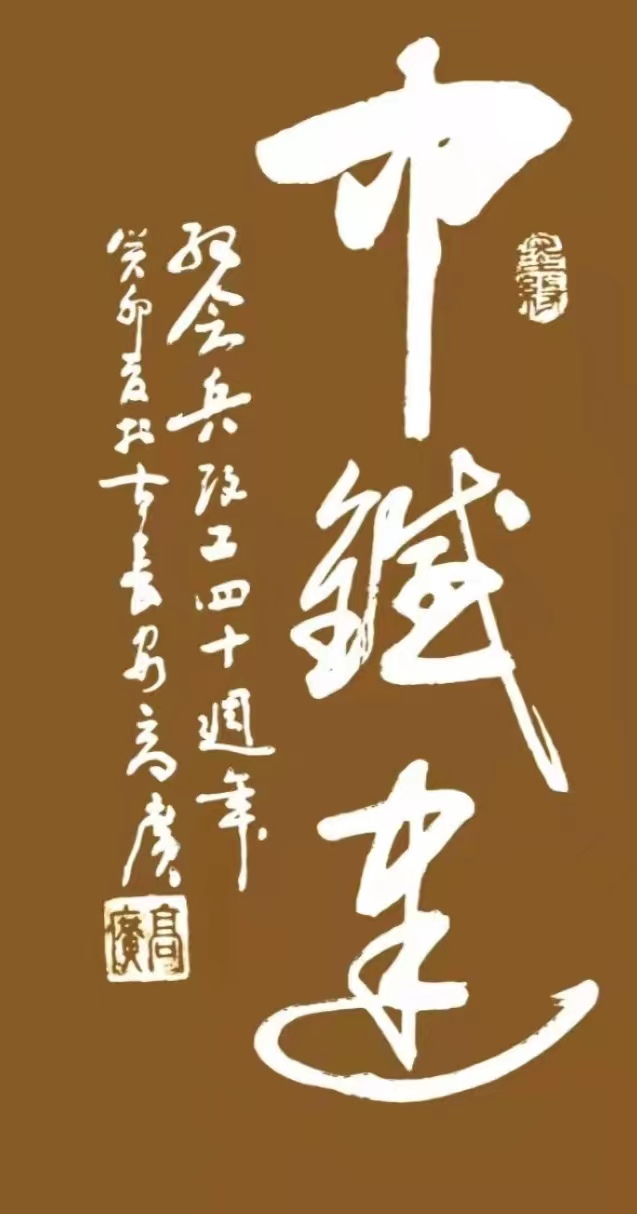 中鐵建
紀念兵改工四十週年
癸卯夏於古長安高廣
高廣